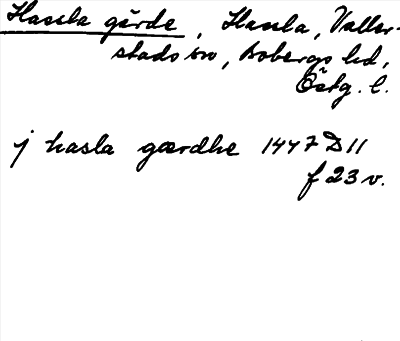 Hassla gärde, Hassla, Valler-
stads sn, Bobergs hd,
Östg. l.
j hasla gærdhe 1447 D 11
f 23 v.